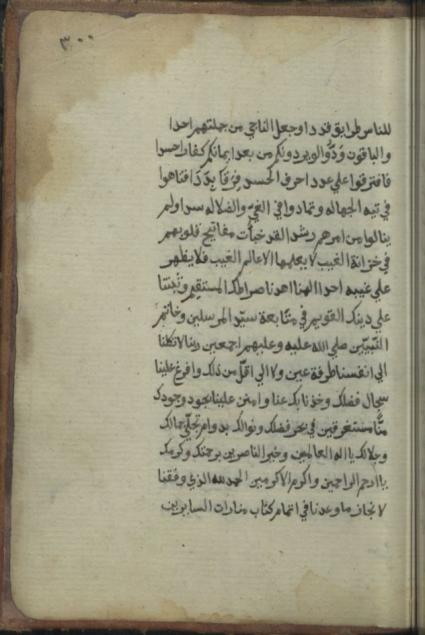 ٣٠٠
للناس طرايق قددا وجعل الناجي من جملتهم احدا
والباقون ودّوا لو يردونكم من بعد ايمانكم كفارا حسدا
فافترقوا علي عدد احرف الحسد فرقا بددا فتاهوا
في تيه الجهاله وتمادوا في الغيّ والضلاله سدا ولم
ينالوا من امرهم رشد القد خبأت مفاتيح قلوبهم
في خزانة الغيب لا يعلمها الا عالم الغيب فلا يظهر
علي غيبه احدا الهنا اهدنا صراطك المستقيم وثبتنا
علي دينك القويم في متابعة سيّد المرسلين وخاتم
النبيّين صلي الله عليه وعليهم اجمعين ربنا لا تكلنا
الي انفسنا طرفة عين ولا الي اقلّ من ذلك وافرغ علينا
سجال فضلك وخذنا بك عنا وامنن علينا بجود وجودك
منّا مستغرقين في بحر فضلك ونوالك بدوام تجلّي جمالك
وجلالك يا اله العالمين وخير الناصرين برحمتك وكرمك
يا ارحم الراحمين واكرم الاكرمين الحمد لله الذي وفقنا
لانجاز ما وعدنا في اتمام كتاب منارات السايرين